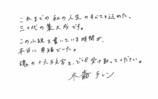 これまでの私の人生のすべてを込めた、
三十代の集大成です。
この小説を書いている時間が、
本当に幸福でした。
僕の
どうぞ受け取ってください。